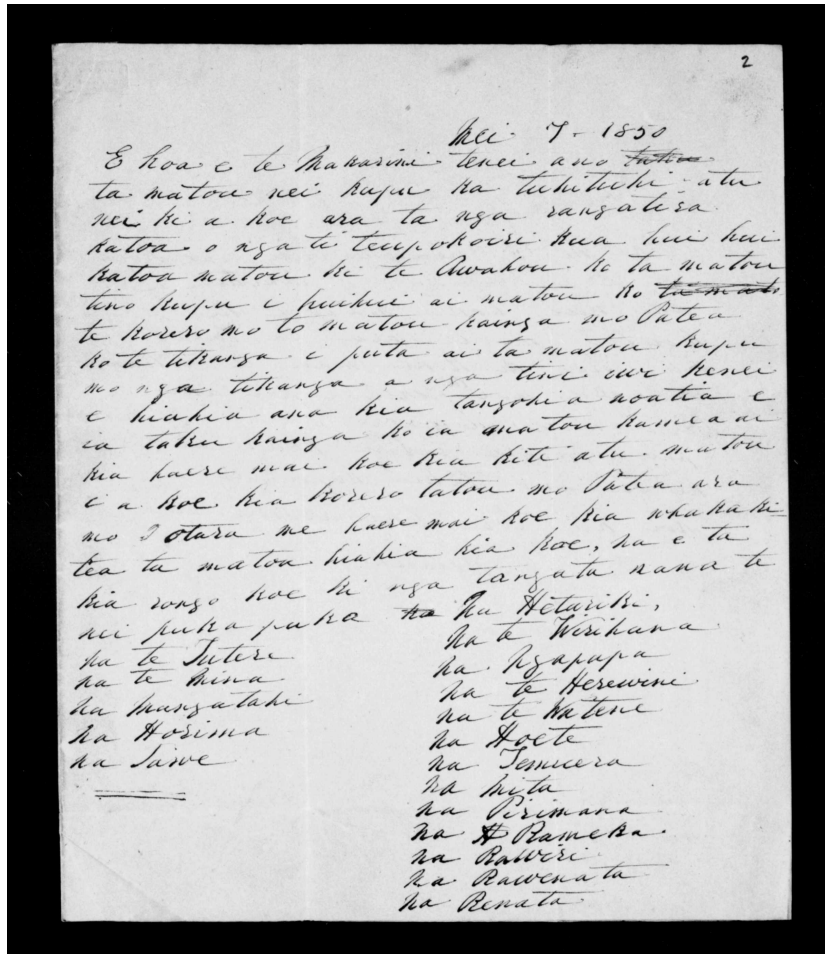 2
Mei 7 - 1850
E hoa e te Makarini tenei ano
ta matou nei kupu ka tuhituhi atu
nei ki a koe ara ta nga rangatira
katoa o ngati teupokoiri kua hui hui
katoa matou ki te Awahou ko ta matou
tino kupu i huihui ai matou ko
te korero mo to matou kainga mo Patea
ko te tikanga i puta ai ta matou kupu
mo nga tikanga a nga tini iwi kenei
e hiahia ana kia tangohia noatia e
ia taku kainga koia matou ka mea ai
kia haere mai koe kia kite atu matou
i a koe kia korero tatou mo Patea ara
mo Totara me haere mai koe kia whakaki
tea ta matou hiahia kia koe, na e ta
kia rongo koe ki nga tangata nana te
nei pukapuka na Hetariki,
na te Wirihana
na Ngapapa
na te Herewini
na te Watene
na Hoete
na Temuera
na Mita
na Pirimana
na H Rameka
na Rawiri
na Rawenata
na Renata
na te Tuteri
na te Mina
na Mangatahi
na Horima
na Tawe